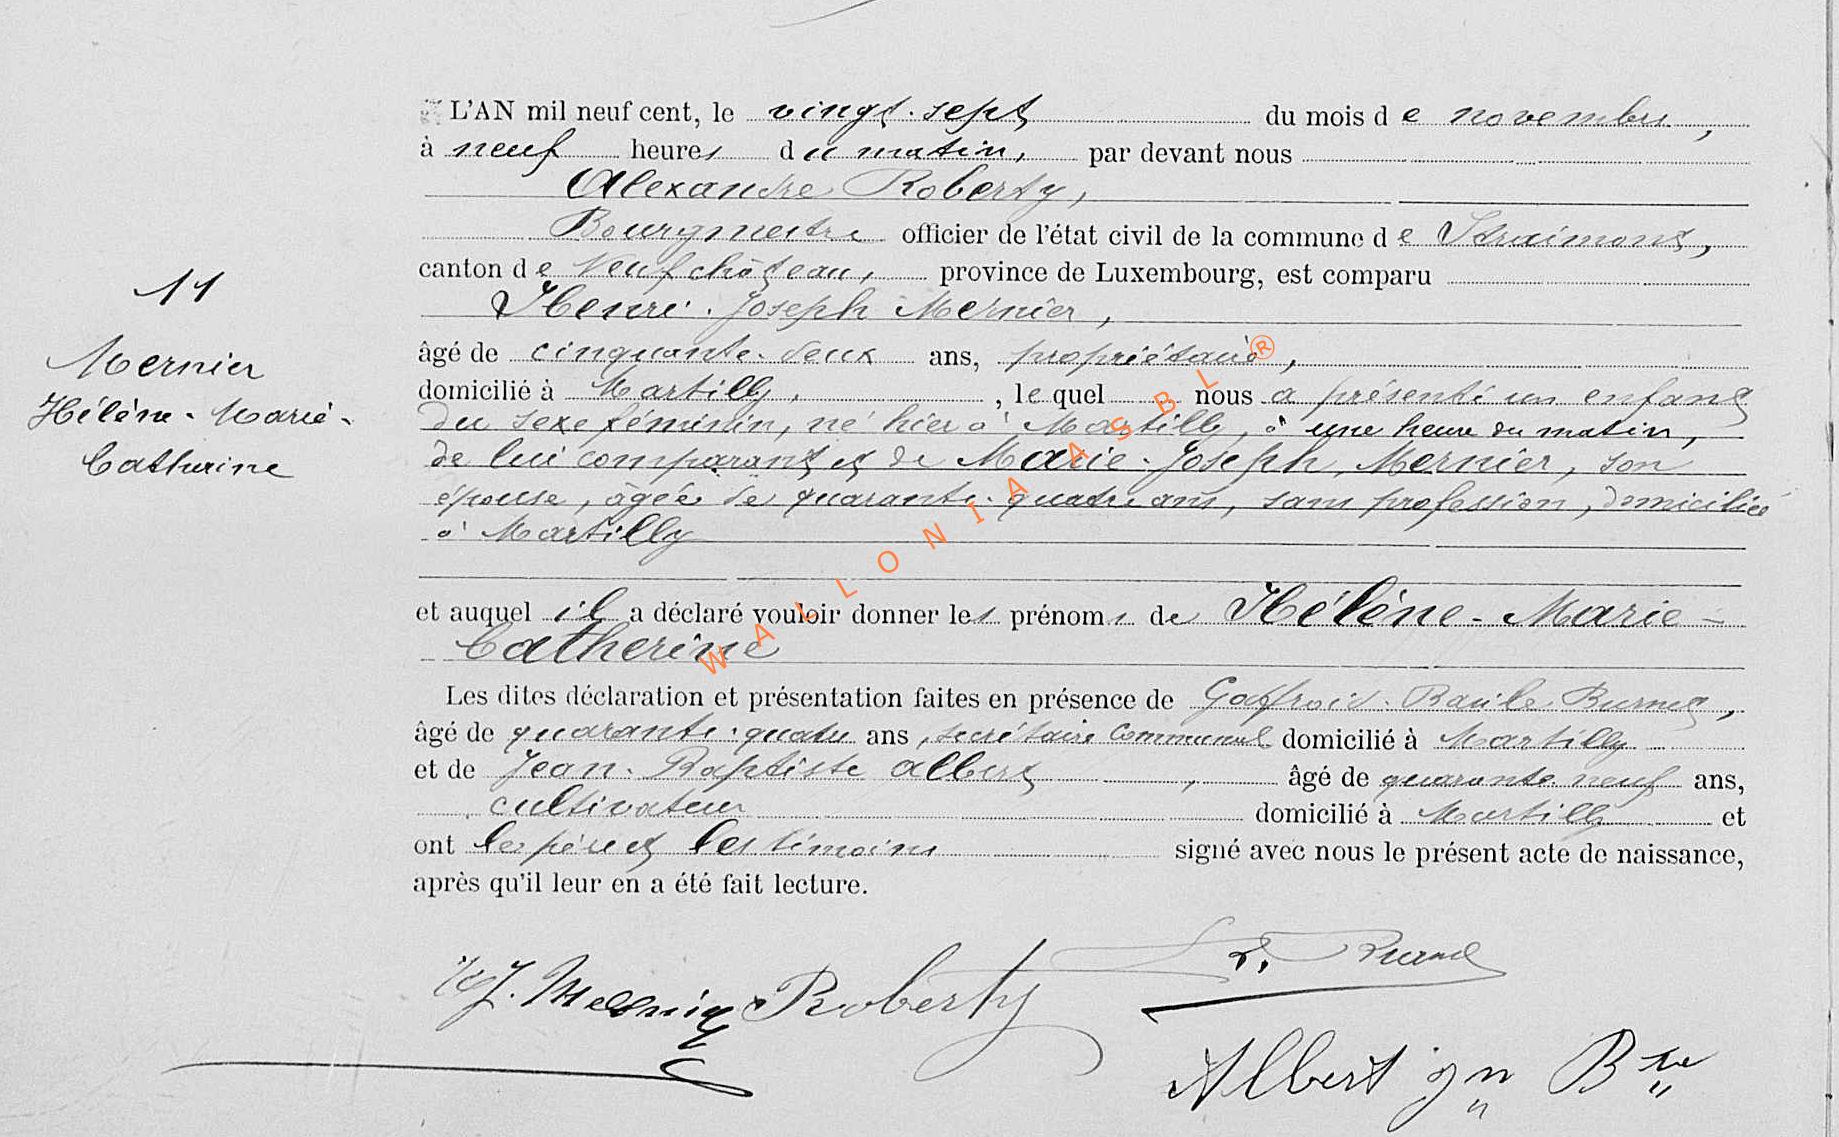 L'AN mil neuf cent, le vingt-sept du mois de novembre,
à neuf heures du matin, par devant nous
Alexandre Roberty,
Bourgmestre officier de l'état civil de la commune de Straimont,
canton de Neufchâteau, province de Luxembourg, est comparu
Henri-Joseph Mernier,
âgé de cinquante-deux ans, propriétaire,
domicilié à Martilly, , lequel nous a présenté un enfant
du sexe féminin, né hier à Martilly, à une heure du matin,
de lui comparant et de Marie-Joseph Mernier, son
épouse, âgée de quarante-quatre ans, sans profession, domiciliée
à Martilly
et auquel il a déclaré vouloir donner les prénoms de Hélène-Marie-
Catherine
Les dites déclaration et présentation faites en présence de
âgé de quarante-quatre ans, secrétaire communal domicilié à Martilly
et de Jean-Baptiste Albert, âgé de quarante neuf ans,
cultivateur domicilié à Martilly et
ont les père et les témoins signé avec nous le présent acte de naissance,
après qu'il leur en a été fait lecture.
11
Mernier
Hélène-Marie-
Catherine
WALLONIA ASBL ®
J. Mernier Roberty
Albert Jn Bte